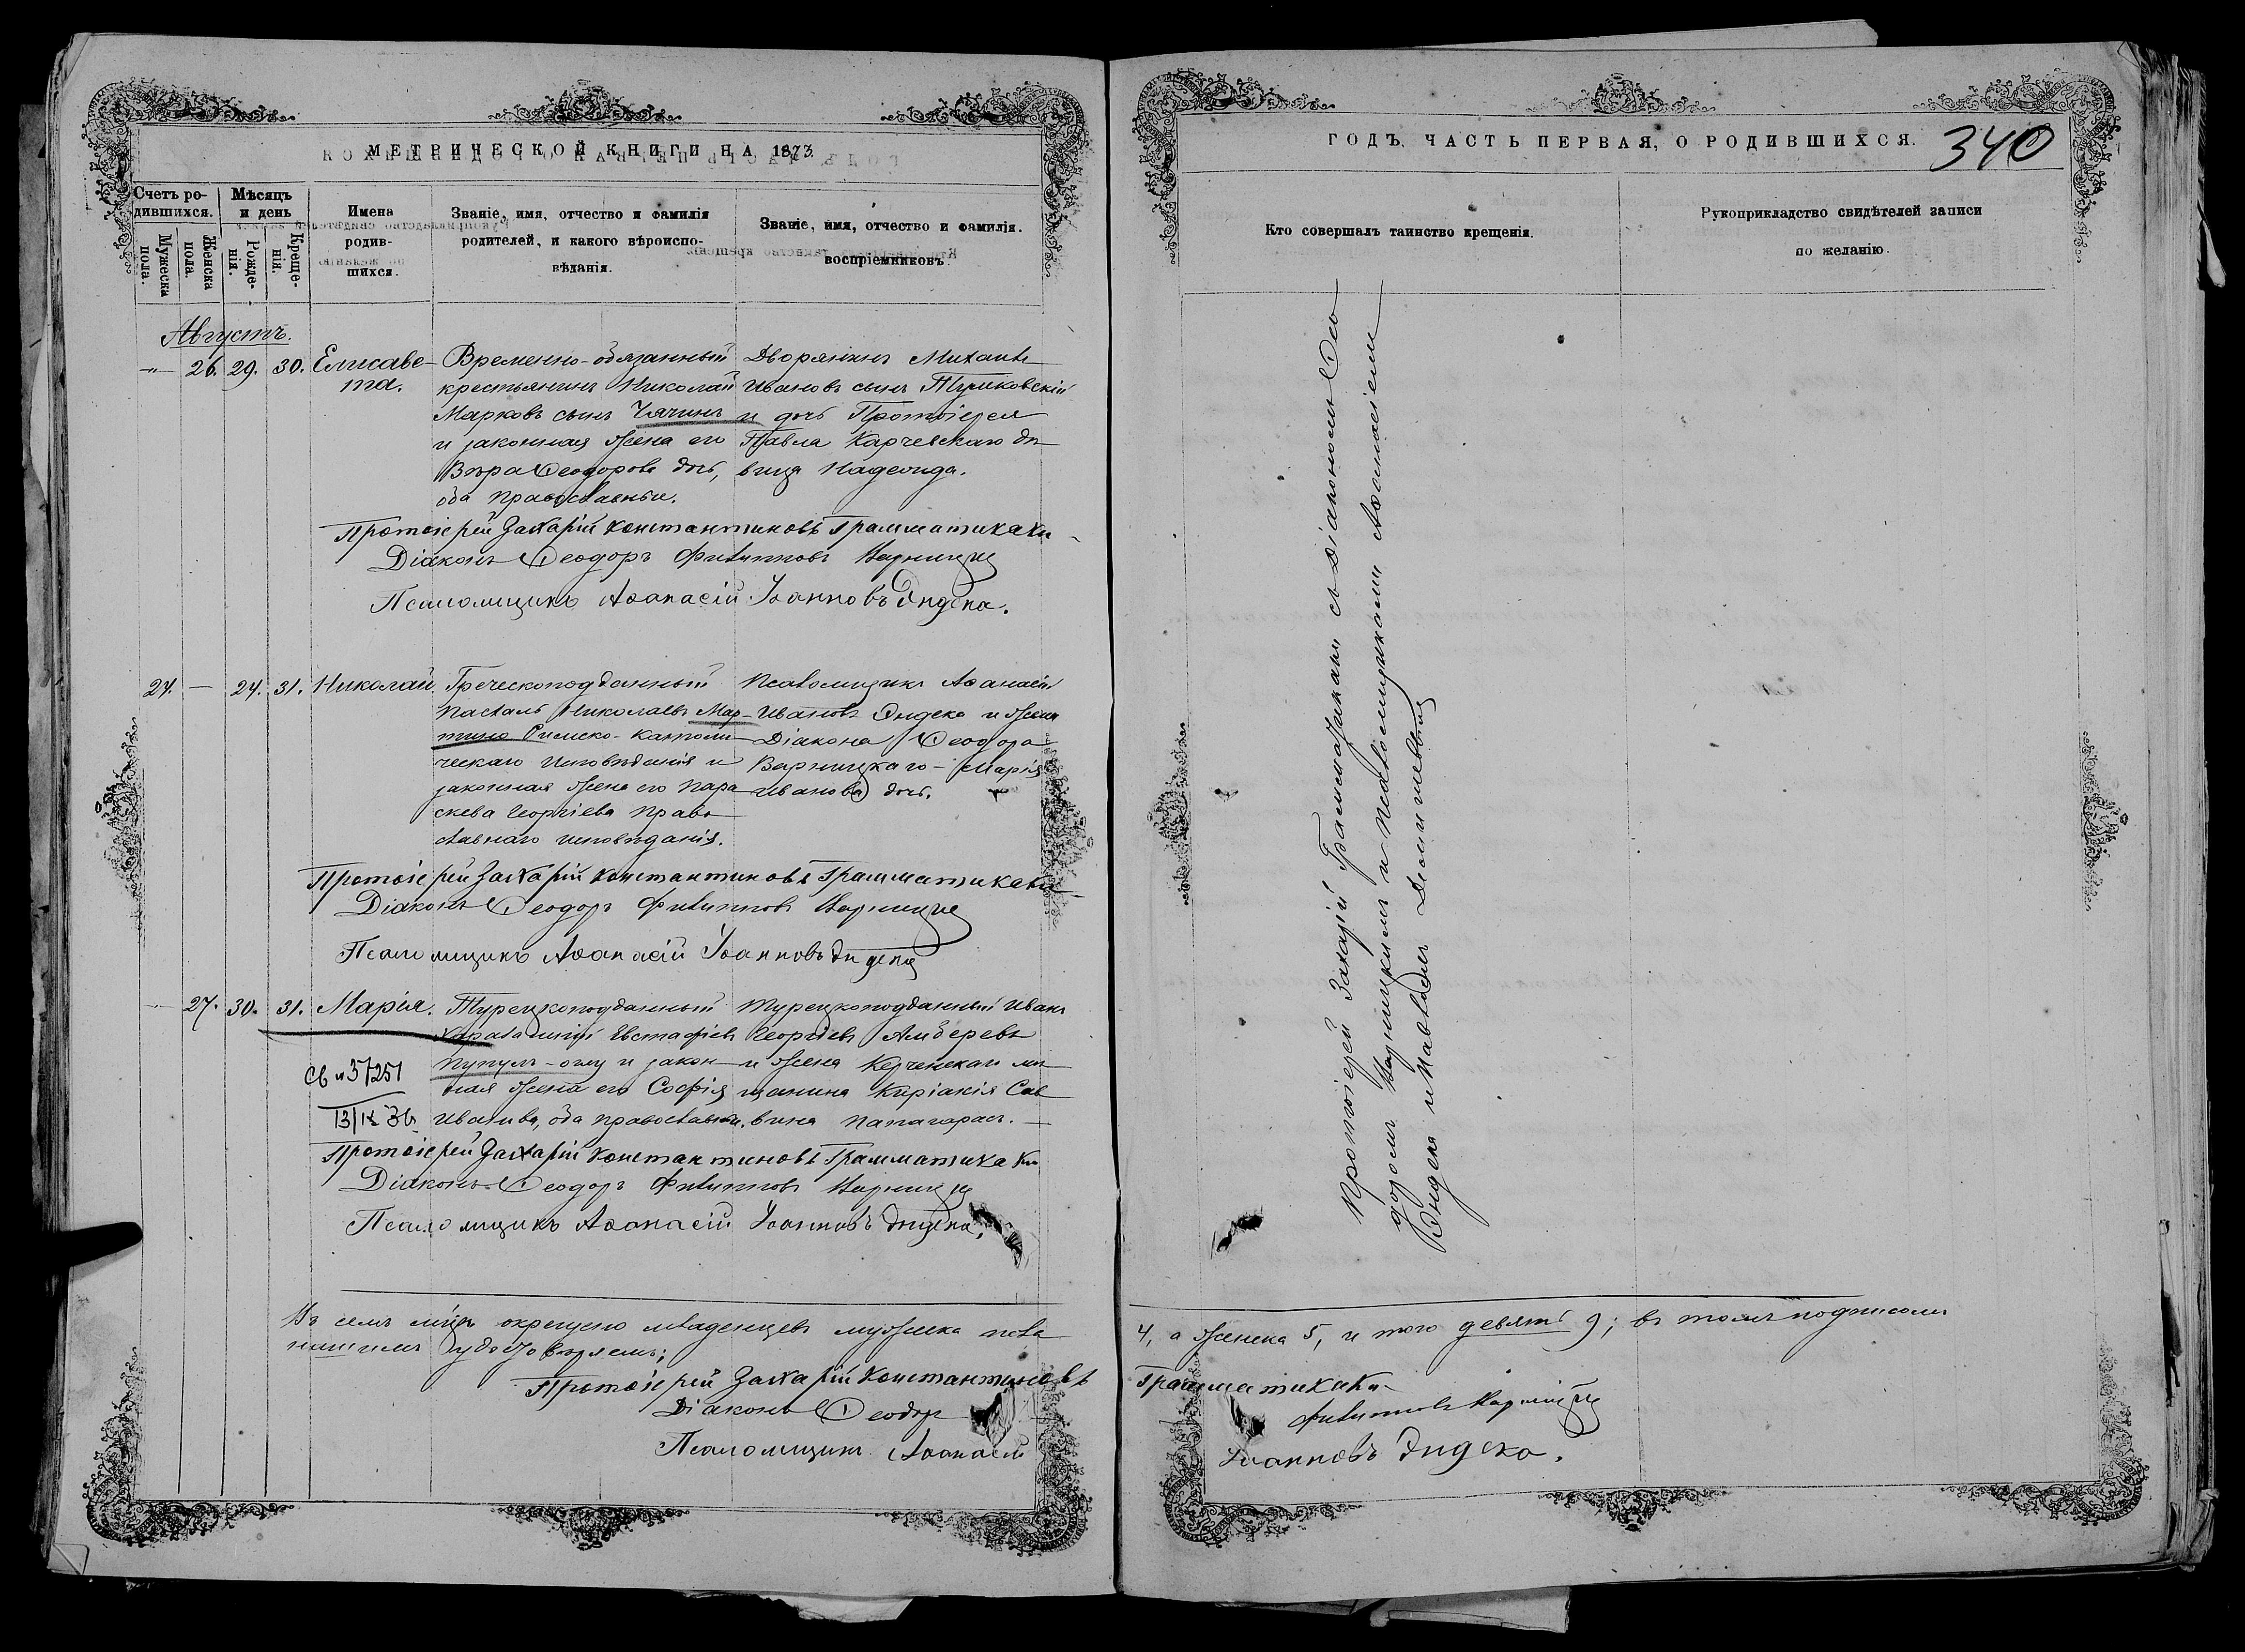 МЕТРИЧЕСКОЙ КНИГИ НА 1873
Счетъ ро-
дившихся.
Мужеска пола.
Женска пола.
Мѣсяцъ
и день
Рожде-
нія.
Креще-
нія.
Имена
родив-
шихся.
Званіе, имя, отчество и фамилія
родителей, и какого вѣроиспо-
вѣданія.
Званіе, имя, отчество и фамилія
воспріемниковъ
Августъ.
26. 29. 30. Елисаве-
та.
Временно-обязанный
крестьянинъ Николай
Марковъ сынъ Чячинъ
и законная жена его
Вѣра Ѳеодорова дочь,
оба православные.
Дворянинъ Михаилъ
Ивановъ сынъ
и дочь Протоіерея
Павла Карчевскаго дѣ
вица Надежда.
Протоіерей Захарій Константиновъ Грамматикаки
Діаконъ Ѳеодоръ Филипповъ Варницкій
Псаломщикъ Аѳанасій Іоанновъ Эндека.
27. — 24. 31. Николай
Греческоподданный
Николаевъ Мар-
тино Римско-Католи
ческаго исповѣданія и
законная жена его Пара
скева Георгіева Право
славнаго исповѣданія.
Псаломщикъ Аѳанасій
Ивановъ Эндека и жена
Діакона Ѳеодора
Варницкаго - Марія
Иванова дочь.
Протоіерей Захарій Константиновъ Грамматикаки
Діаконъ Ѳеодоръ Филипповъ Варницкій
Псаломщикъ Аѳанасій Іоанновъ Эндека
27. 30. 31. Марія.
Турецкоподданный
Евстафіевъ
и закон
ная жена его Софія
Иванова, оба православные.
Турецкоподданный Иванъ
Георгіевъ
и жена Керченскаго мѣ
щанина Киріакія Сав
вина
Св № 37251
13/IX 36
Протоіерей Захарій Константиновъ Грамматикаки
Діаконъ Ѳеодоръ Филипповъ Варницкій
Псаломщикъ Аѳанасій Іоанновъ Эндека.
Въ семъ мѣсяцѣ окрещено младенцевъ мужеска пола
нашимъ удостовѣряемъ;
Протоіерей Захарій Константиновъ
Діаконъ Ѳеодоръ
Псаломщикъ Аѳанасій
ГОДЪ, ЧАСТЬ ПЕРВАЯ, О РОДИВШИХСЯ.
340
Кто совершалъ таинство крещенія.
Рукоприкладство свидѣтелей записи
по желанію.
Протоіерей Захарій Грамматикаки съ Діакономъ Ѳео
доромъ Варницкимъ и псаломщиками Аѳанасіемъ
Эндека и Павломъ
4, а женска 5, и того девять 9; въ томъ подписомъ
Грамматикаки
Филипповъ Варницкій
Іоанновъ Эндека.